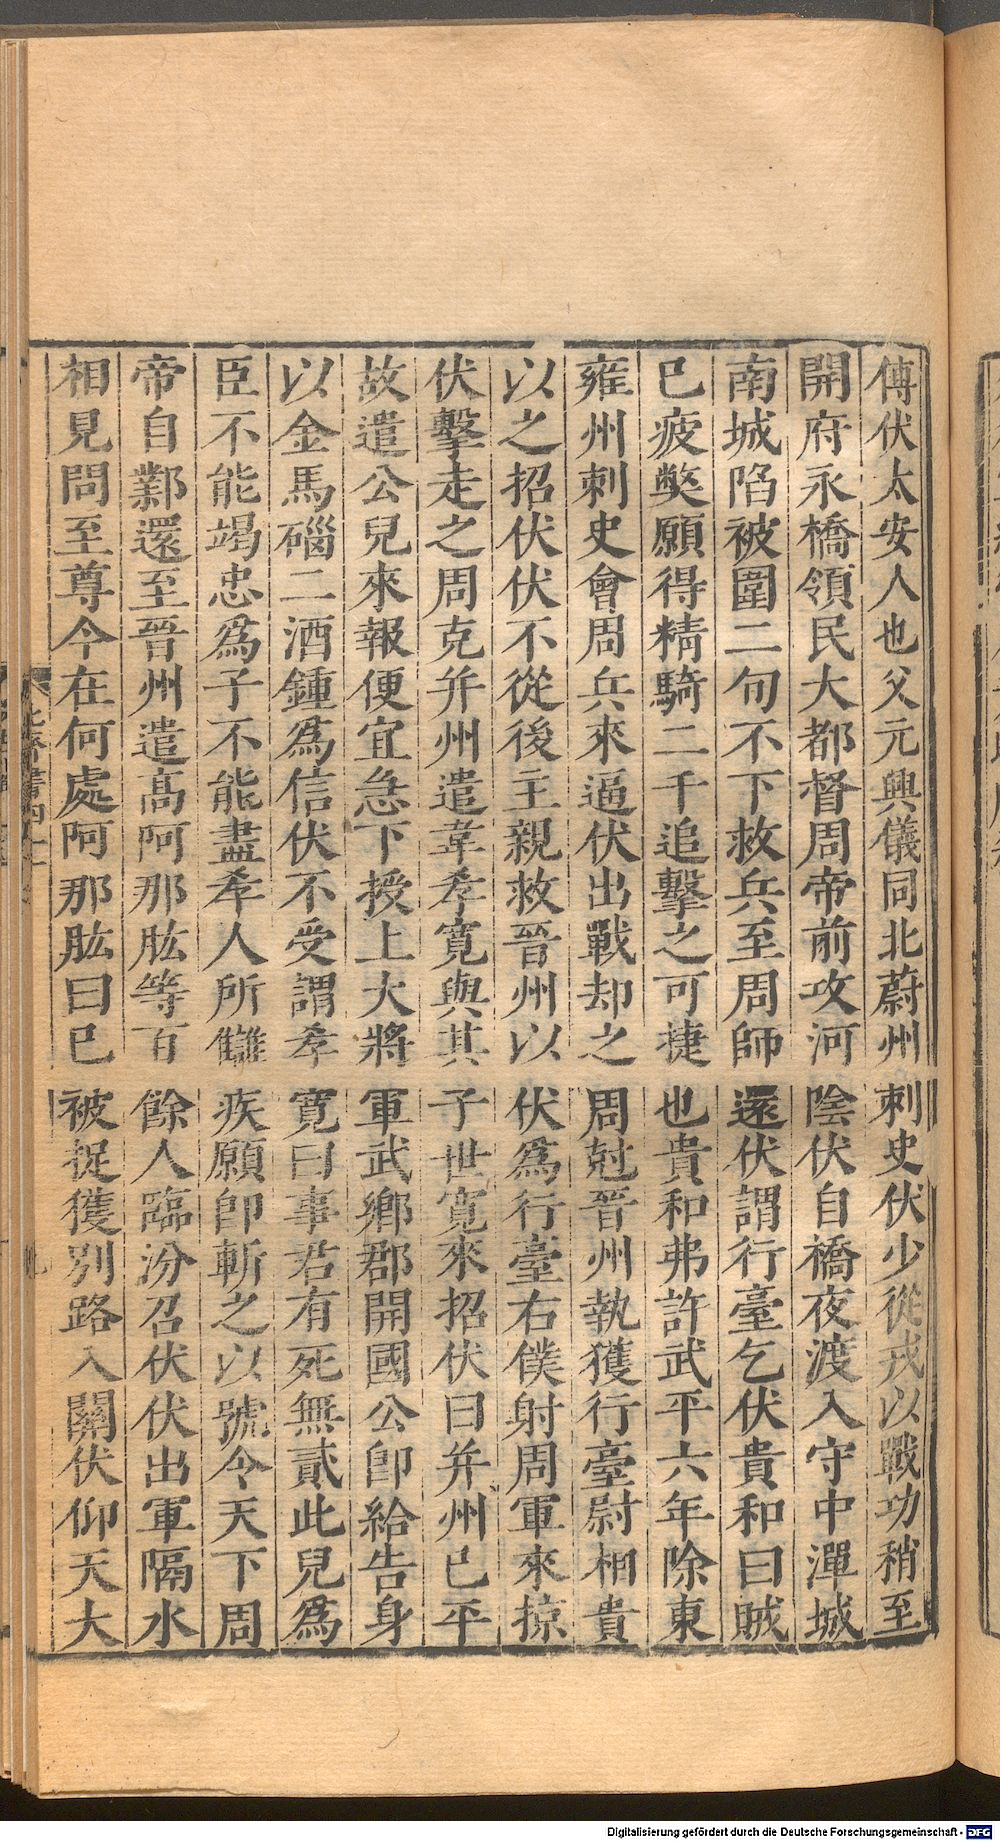 傅伏太安人也父元興儀同北蔚州刺史伏少從戎以戰功稍至
開府永橋領民大都督周帝前攻河陰伏自橋夜渡入守中潬城
南城陷被圍二旬不下救兵至周師還伏謂行臺乞伏貴和曰賊
已疲獘願得精騎二千追擊之可捷也貴和弗許武平六年除東
雍州刺史會周兵來逼伏出戰却之周尅晉州執獲行臺尉相貴
以之招伏伏不從後主親救晉州以伏爲行臺右僕射周軍來掠
伏擊走之周克并州遣韋孝寬與其子世寬來招伏曰并州已平
故遣公兒來報便宜急下授上大將軍武鄉郡開國公卽給告身
以金馬碯二酒鍾爲信伏不受謂孝寬曰事君有死無貳此兒爲
臣不能竭忠爲子不能盡孝人所讎疾願卽斬之以號令天下周
帝自鄴還至晉州遣高阿那肱等百餘人臨汾召伏伏出軍隔水
相見問至尊今在何處阿那肱曰已被捉獲别路入關伏仰天大
Digitalisierung gefördert durch die Deutsche Forschungsgemeinschaft - DFG